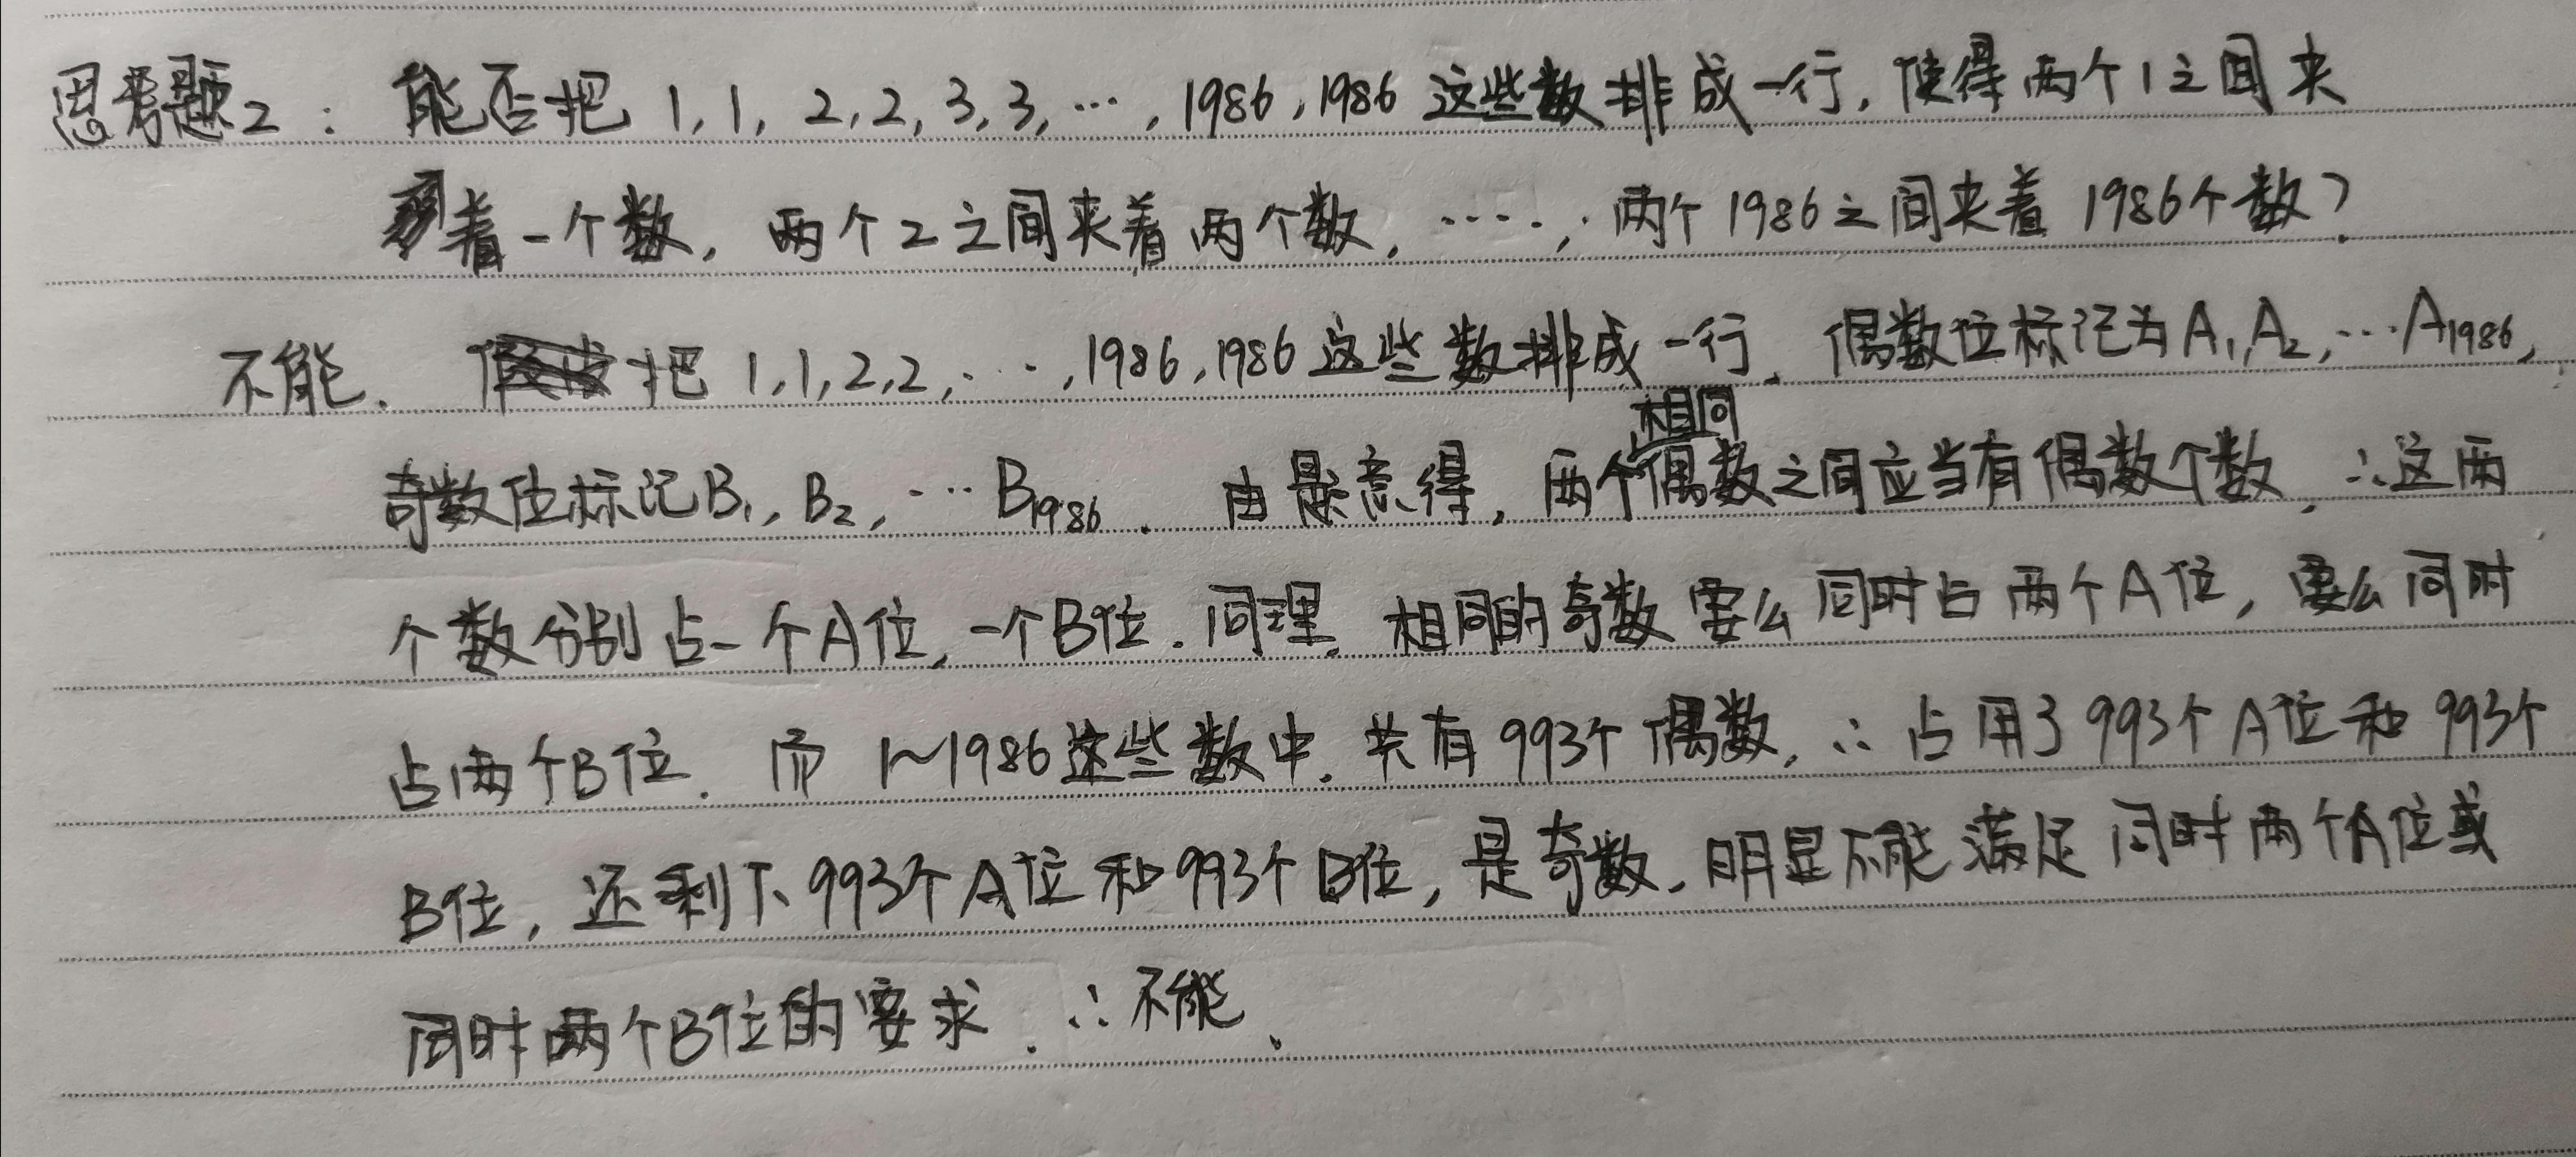 思考题2: 能否把 1,1, 2,2, 3,3, …, 1986, 1986 这些数排成一行, 使得两个1之间夹
着一个数, 两个2之间夹着两个数, ……, 两个1986之间夹着1986个数?
不能. 把 1,1,2,2,…,1986,1986这些数排成一行, 偶数位标记为A₁,A₂,…A₁₉₈₆,
奇数位标记B₁, B₂, …B₁₉₈₆. 由题意得, 两个相同偶数之间应当有偶数个数, ∴这两
个数分别占一个A位, 一个B位. 同理, 相同的奇数要么同时占两个A位, 要么同时
占两个B位. 而 1~1986这些数中, 共有993个偶数, ∴占用了993个A位和993个
B位, 还剩下993个A位和993个B位, 是奇数, 明显不能满足同时两个A位或
同时两个B位的要求. ∴不能.